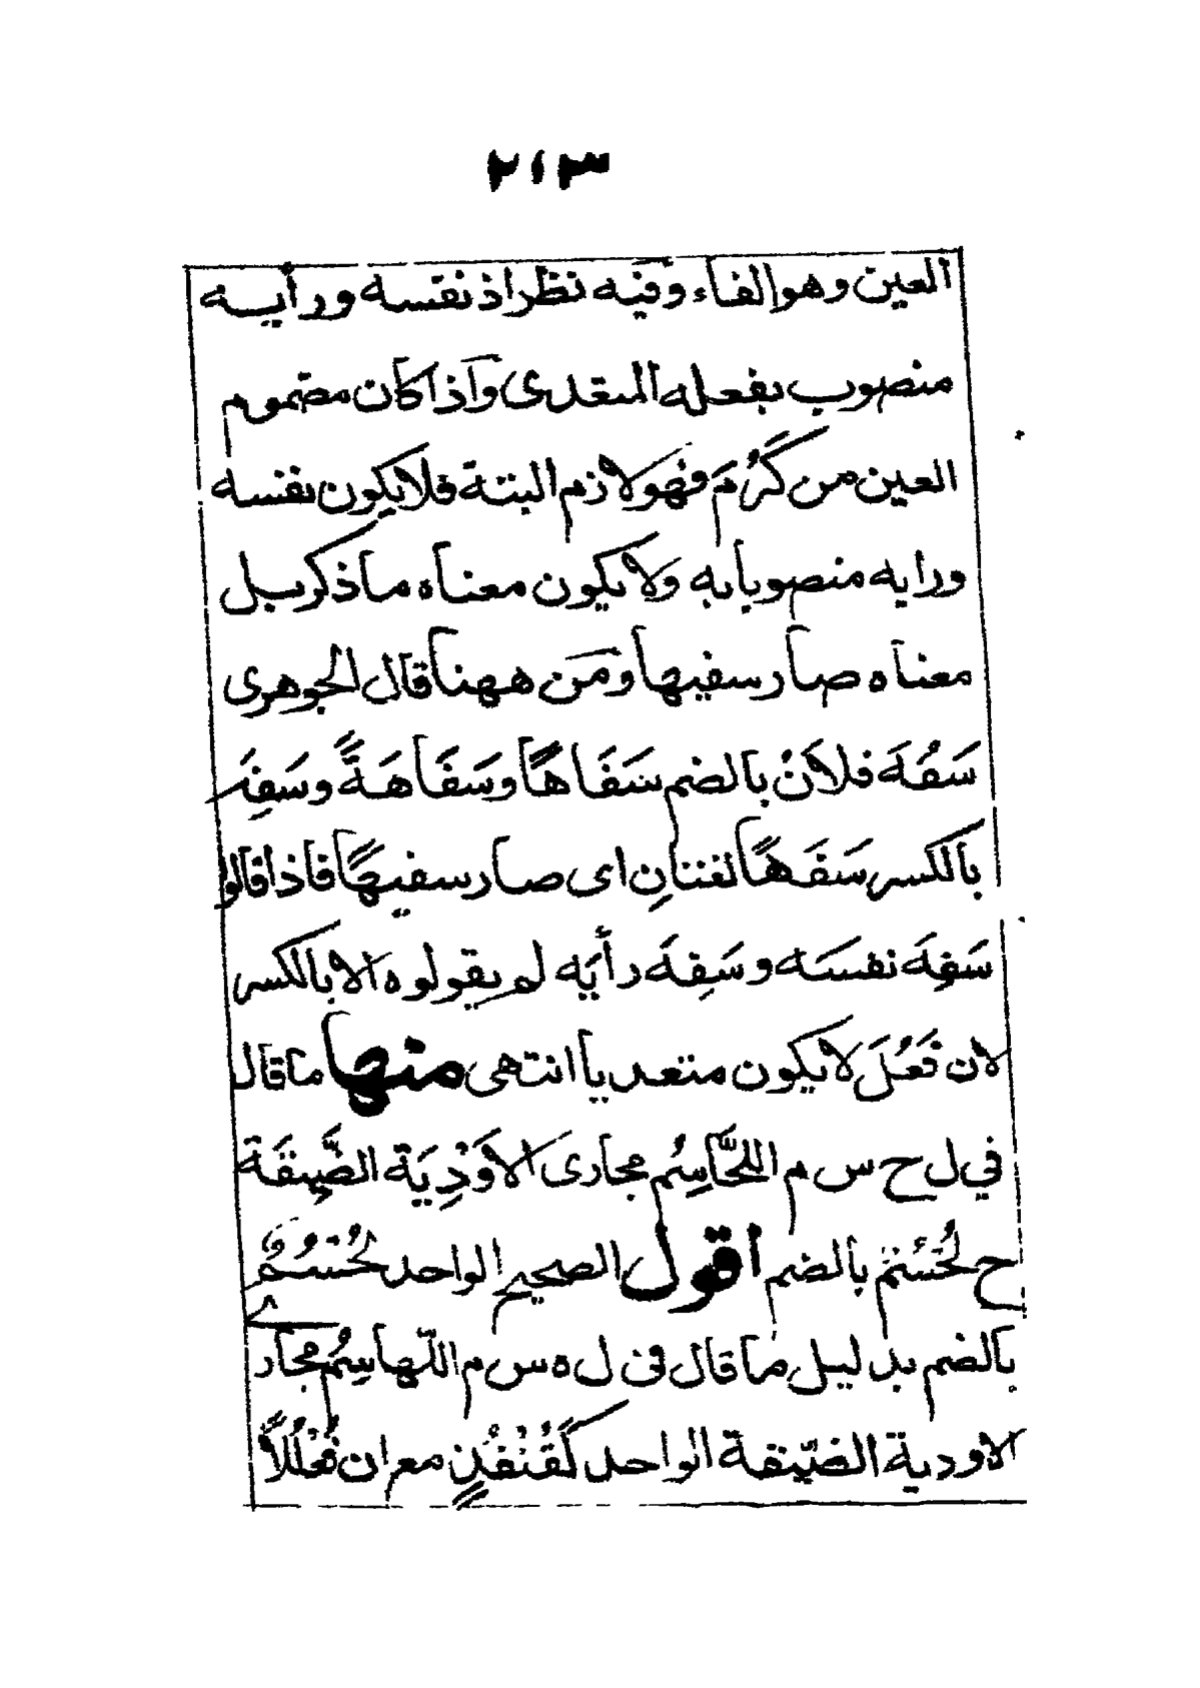 ٢١٣
العين وهو الفاء وفيه نظر اذ نفسه ورأيه
منصوب بفعله المتعدى وآذا كان مضموم
العين من كَرُمَ فهو لازم البتة فلا يكون نفسه
ورايه منصوبا به ولا يكون معناه ما ذكر بل
معناه صار سفيها ومن ههنا قال الجوهرى
سَفُهَ فلانٌ بالضم سَفَاهًا وسَفَاهَةً وسَفِهَ
بالكسر سَفَهًا لغتانِ اى صار سفيهًا فاذا قالوا
سَفِهَ نفسَه وسَفِهَ رأيَه لم يقولوه الا بالكسر
لان فَعُلَ لا يكون متعديا انتهى منها ما قال
في ل ح س م اللحَّاسِمُ مجارى الاَوْدِيَة الضَّيِقَة
ج لُحْسُمٌ بالضم اقول الصحيح الواحد لُحْسُمٌ
بالضم بدليل ما قال فى ل ه س م اللّهاسِمُ مجار
الاودية الضيّقة الواحد كَقُنْفُذٍ مع ان فُعْلُلًا